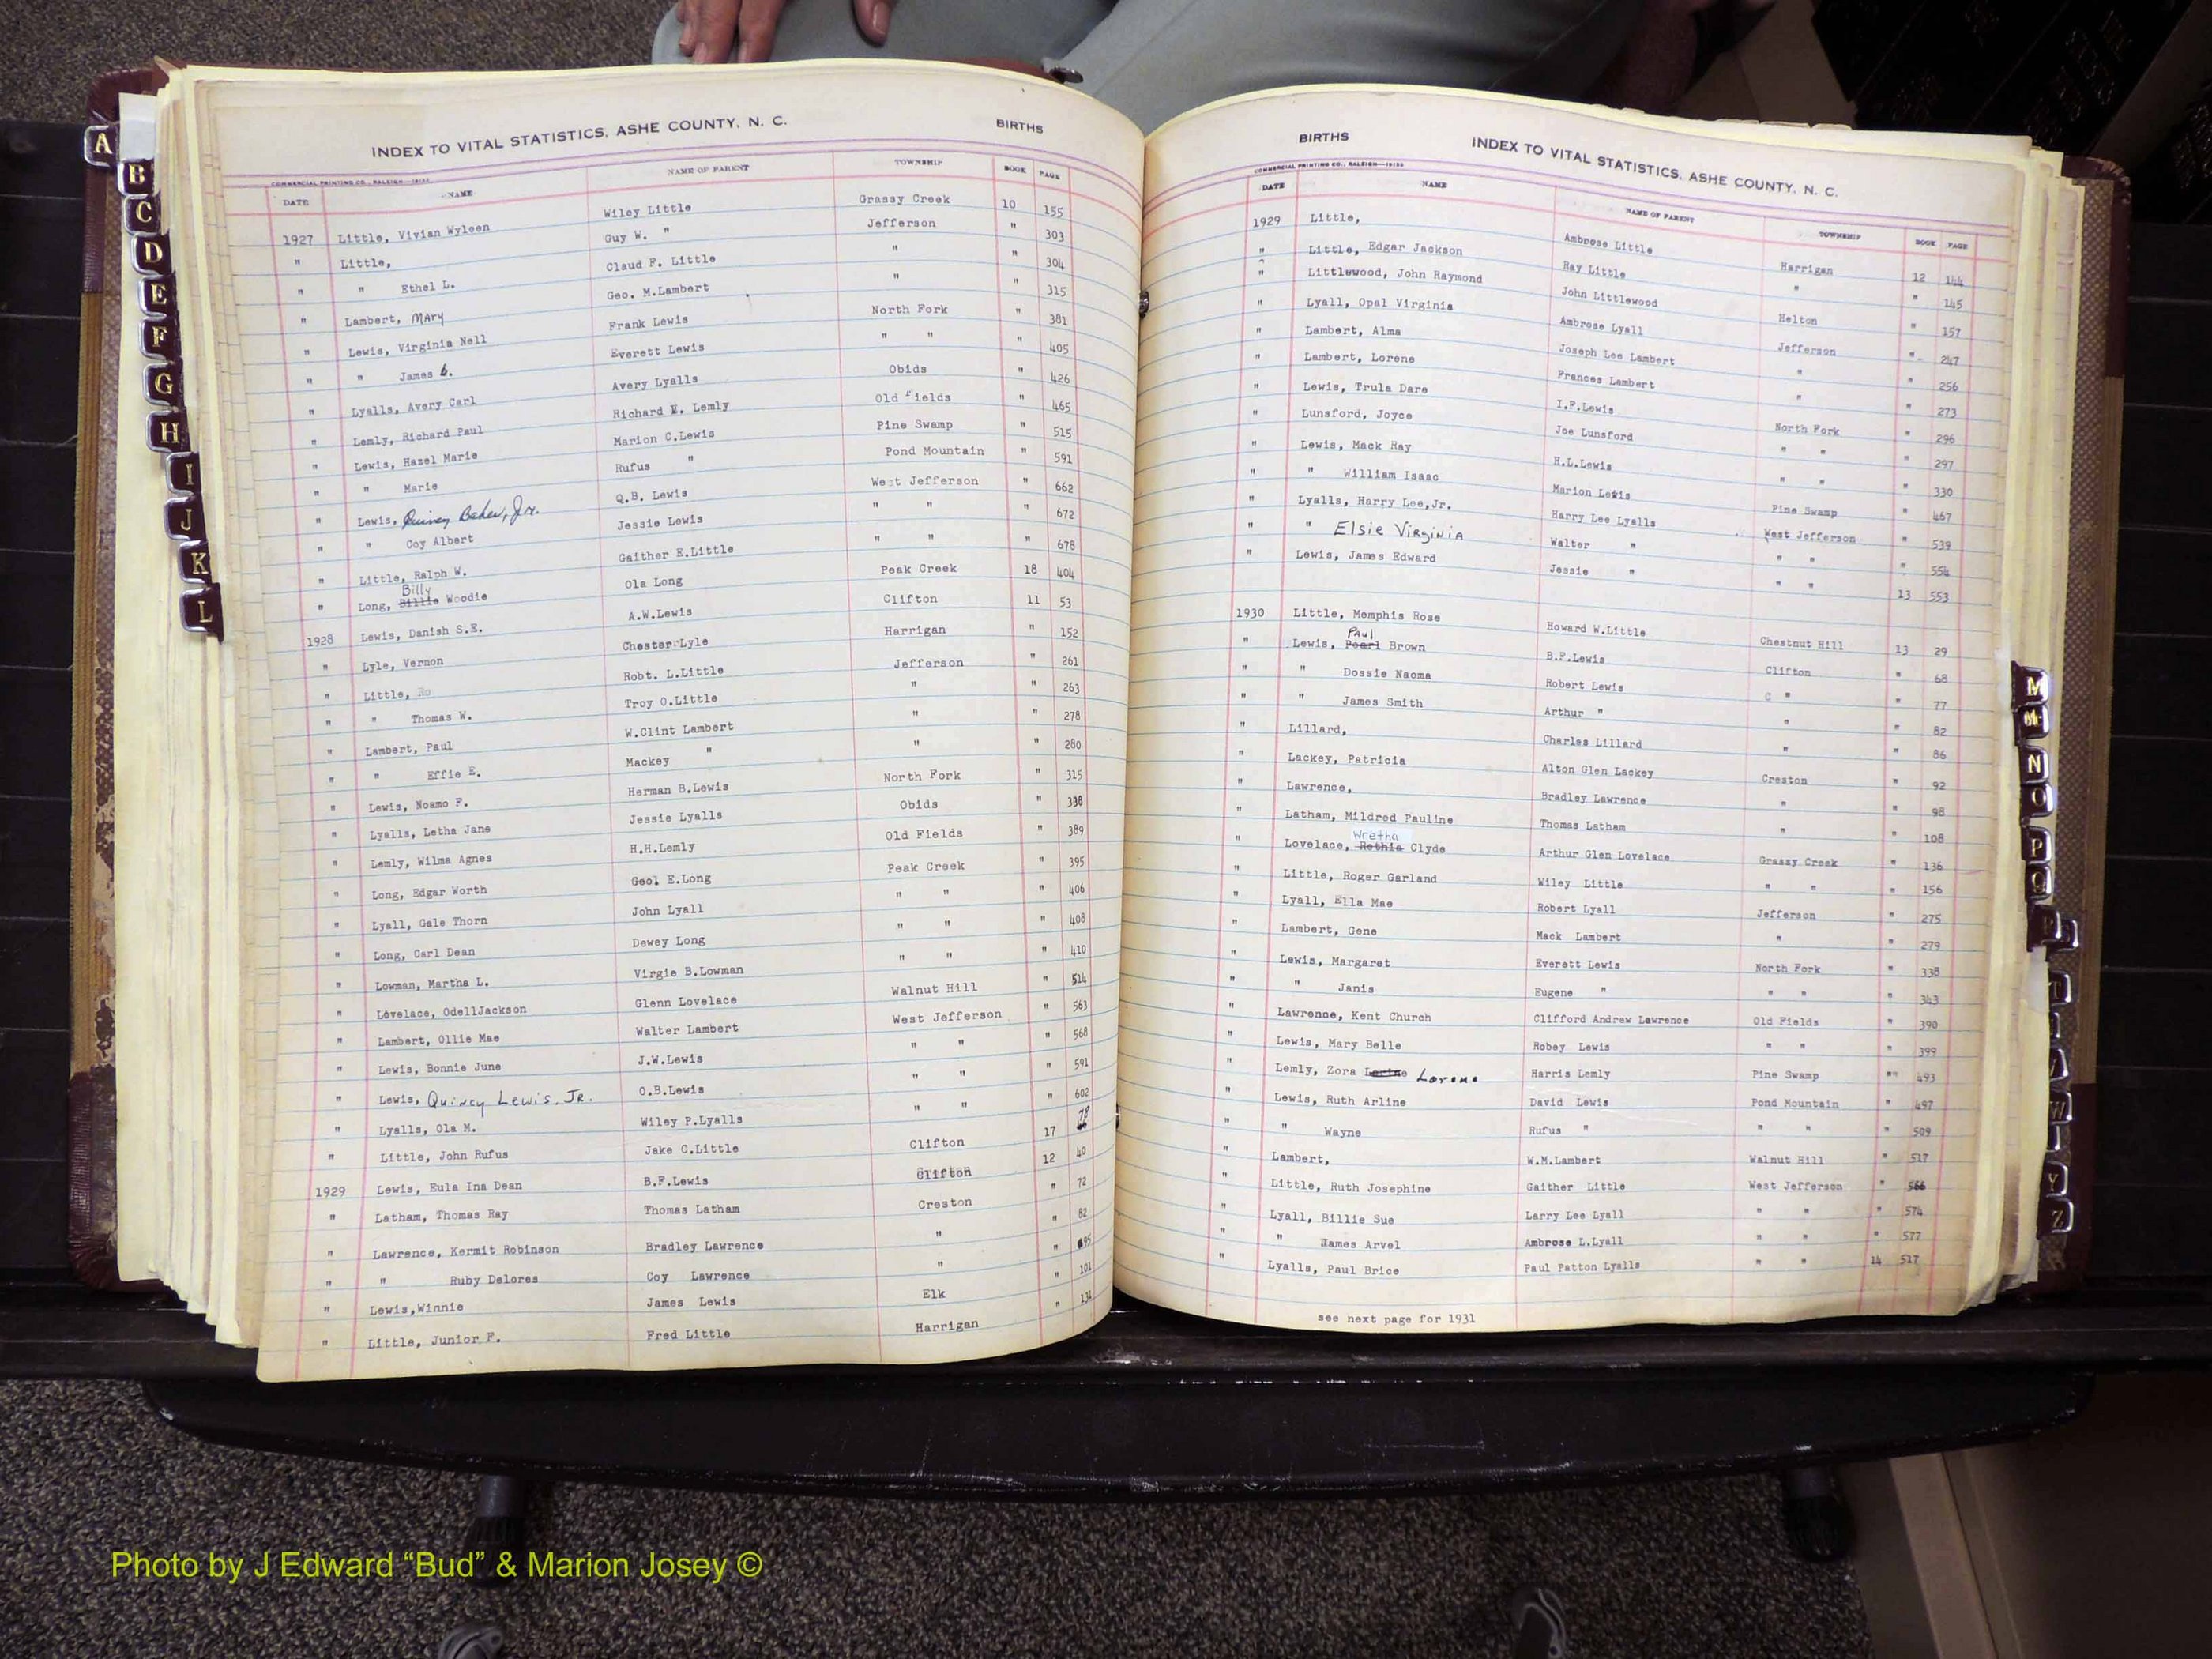 INDEX TO VITAL STATISTICS, ASHE COUNTY, N. C. BIRTHS
COMMERCIAL PRINTING CO., RALEIGH—19153
DATE NAME NAME OF PARENT TOWNSHIP BOOK PAGE
1927 Little, Vivian Wyleen Wiley Little Grassy Creek 10 155
" Little, Guy W. " Jefferson " 303
" " Ethel L. Claud F. Little " " 304
" Lambert, MARY Geo. M.Lambert " " 315
" Lewis, Virginia Nell Frank Lewis North Fork " 381
" " James Everett Lewis " " " 405
" Lyalls, Avery Carl Avery Lyalls Obids " 426
" Lemly, Richard Paul Richard M. Lemly Old Fields " 465
" Lewis, Hazel Marie Marion C.Lewis Pine Swamp " 515
" " Marie Rufus " Pond Mountain " 591
" Lewis, Quincy Baker, Jr. Q.B. Lewis West Jefferson " 662
" " Coy Albert Jessie Lewis " " " 672
" Little, Ralph W. Gaither E.Little " " " 678
Billy
" Long, Billie Woodie Ola Long Peak Creek 18 404
1928 Lewis, Danish S.E. A.W.Lewis Clifton 11 53
" Lyle, Vernon Chester Lyle Harrigan " 152
" Little, Ro Robt. L.Little Jefferson " 261
" " Thomas W. Troy O.Little " " 263
" Lambert, Paul W.Clint Lambert " " 278
" " Effie E. Mackey " " " 280
" Lewis, Noamo F. Herman B.Lewis North Fork " 315
" Lyalls, Letha Jane Jessie Lyalls Obids " 338
" Lemly, Wilma Agnes H.H.Lemly Old Fields " 389
" Long, Edgar Worth Geo. E.Long Peak Creek " 395
" Lyall, Gale Thorn John Lyall " " " 406
" Long, Carl Dean Dewey Long " " " 408
" Lowman, Martha L. Virgie B.Lowman " " " 410
" Lovelace, OdellJackson Glenn Lovelace Walnut Hill " 514
" Lambert, Ollie Mae Walter Lambert West Jefferson " 563
" Lewis, Bonnie June J.W.Lewis " " " 568
" Lewis, Quincy Lewis, Jr. O.B.Lewis " " " 591
" Lyalls, Ola M. Wiley P.Lyalls " " " 602
" Little, John Rufus Jake C.Little Clifton 17 78
1929 Lewis, Eula Ina Dean B.F.Lewis Clifton 12 40
" Latham, Thomas Ray Thomas Latham Creston " 72
" Lawrence, Kermit Robinson Bradley Lawrence " " 82
" " Ruby Delores Coy Lawrence " " 95
" Lewis,Winnie James Lewis Elk " 101
" Little, Junior F. Fred Little Harrigan " 131
BIRTHS INDEX TO VITAL STATISTICS, ASHE COUNTY, N. C.
COMMERCIAL PRINTING CO., RALEIGH—19153
DATE NAME NAME OF PARENT TOWNSHIP BOOK PAGE
1929 Little, Ambrose Little Harrigan 12 144
" Little, Edgar Jackson Ray Little " " 145
" Littlewood, John Raymond John Littlewood Helton " 157
" Lyall, Opal Virginia Ambrose Lyall Jefferson " 247
" Lambert, Alma Joseph Lee Lambert " " 256
" Lambert, Lorene Frances Lambert " " 273
" Lewis, Trula Dare I.F.Lewis North Fork " 296
" Lunsford, Joyce Joe Lunsford " " " 297
" Lewis, Mack Ray H.L.Lewis " " " 330
" " William Isaac Marion Lewis Pine Swamp " 467
" Lyalls, Harry Lee,Jr. Harry Lee Lyalls West Jefferson " 539
" " Elsie Virginia Walter " " " " 554
" Lewis, James Edward Jessie " " " 13 553
1930 Little, Memphis Rose Howard W.Little Chestnut Hill 13 29
Paul
" Lewis, Pearl Brown B.F.Lewis Clifton " 68
" " Dossie Naoma Robert Lewis C " " 77
" " James Smith Arthur " " " 82
" Lillard, Charles Lillard " " 86
" Lackey, Patricia Alton Glen Lackey Creston " 92
" Lawrence, Bradley Lawrence " " 98
" Latham, Mildred Pauline Thomas Latham " " 108
Wretha
" Lovelace, Rethia Clyde Arthur Glen Lovelace Grassy Creek " 136
" Little, Roger Garland Wiley Little " " " 156
" Lyall, Ella Mae Robert Lyall Jefferson " 275
" Lambert, Gene Mack Lambert " " 279
" Lewis, Margaret Everett Lewis North Fork " 338
" " Janis Eugene " " " " 343
" Lawrence, Kent Church Clifford Andrew Lawrence Old Fields " 390
" Lewis, Mary Belle Robey Lewis " " " 399
" Lemly, Zora Lorene Harris Lemly Pine Swamp " 493
" Lewis, Ruth Arline David Lewis Pond Mountain " 497
" " Wayne Rufus " " " " 509
" Lambert, W.M.Lambert Walnut Hill " 517
" Little, Ruth Josephine Gaither Little West Jefferson " 566
" Lyall, Billie Sue Larry Lee Lyall " " " 574
" " James Arvel Ambrose L.Lyall " " " 577
" Lyalls, Paul Brice Paul Patton Lyalls " " 14 517
see next page for 1931
A
B
C
D
E
F
G
H
I
J
K
L
M
Mc
N
O
P
Q
R
T
W
Y
Z
Photo by J Edward “Bud” & Marion Josey ©